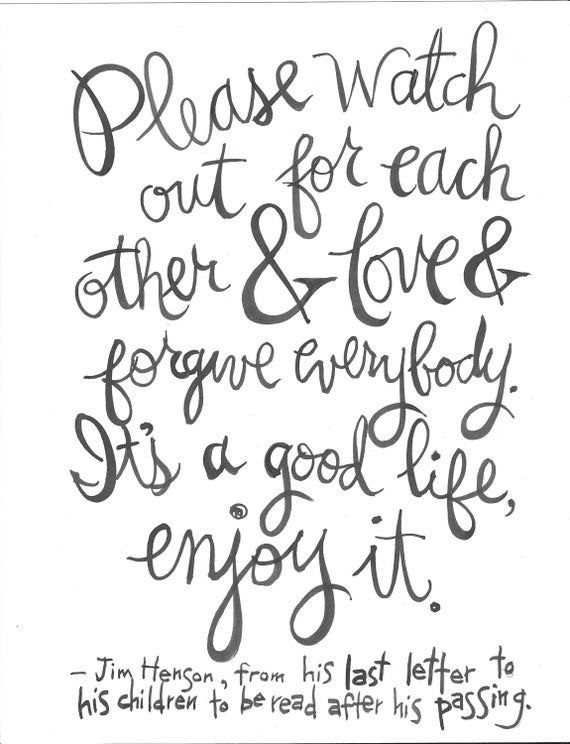 Please watch
out for each
other & love &
forgive everybody.
It's a good life,
enjoy it.
- Jim Henson, from his last letter to
his children to be read after his passing.